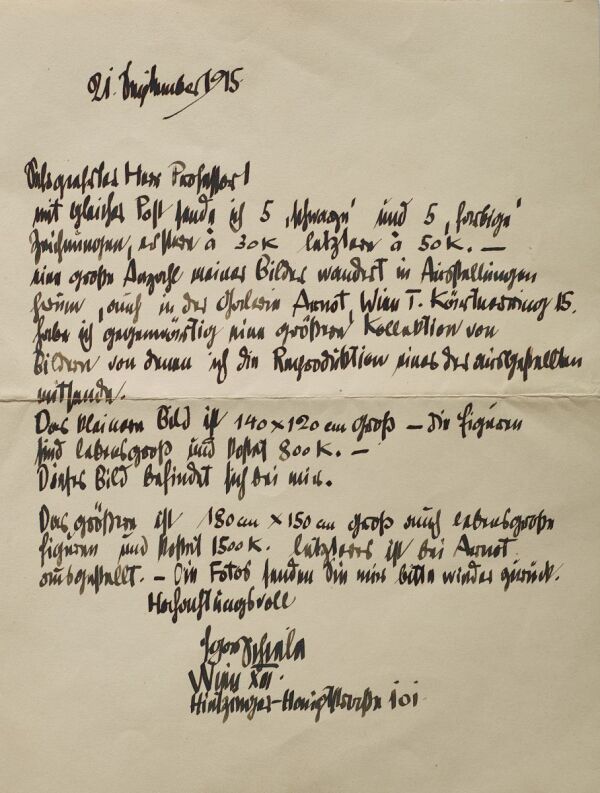 21. September 1915
Sehrgeehrter Herr Professor!
mit gleicher Post sende ich 5 „schwarze" und 5 „farbige"
Zeichnungen, erstere à 30K letztere à 50K. —
eine große Anzahl meiner Bilder wandert in Ausstellungen
herum, auch in der Galerie Arnot, Wien I. Kärtnerring 15.
habe ich gegenwärtig eine größere Kollektion von
Bildern von denen ich die Reproduktion eines der ausgestellten
mitsende.
Das kleinere Bild ist 140 x 120 cm groß — die figuren
sind lebensgroß und kostet 800K. —
Dieses Bild befindet sich bei mir.
Das größere ist 180 cm x 150 cm groß auch lebensgroße
figuren und kostet 1500K. letzteres ist bei Arnot
ausgestellt. — Die Fotos senden Sie mir bitte wieder zurück.
Hochachtungsvoll
Egon Schiele
Wien XIII.
Hietzinger-Hauptstraße 101